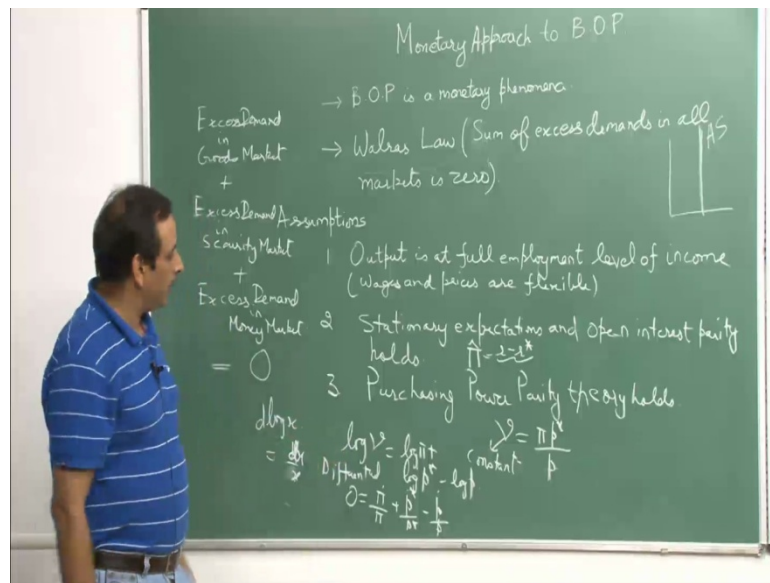 Monetary Approach to B O P
→ B O P is a monetary phenomena.
→ Walras Law (Sum of excess demands in all
markets is zero).
AS
Excess Demand
in
Goods Market
+
Excess Demand
in
Security Market
+
Excess Demand
in
Money Market
= 0
Assumptions
1 Output is at full employment level of income
(Wages and prices are flexible)
2 Stationary expectations and open interest parity
holds π̂ = r - r*
3 Purchasing Power Parity theory holds.
ν = πp*/p
Constant
log ν = log π +
log p* - log p
0 = π̇/π + ṗ*/p* - ṗ/p
d log x
= dx/x